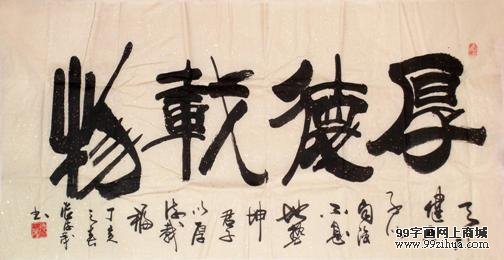 厚德載物
天
健
君子
自強
不息
地勢
坤
君子
以厚
德載
物
丁亥
之春
書
99字画网上商城
www.99zihua.com